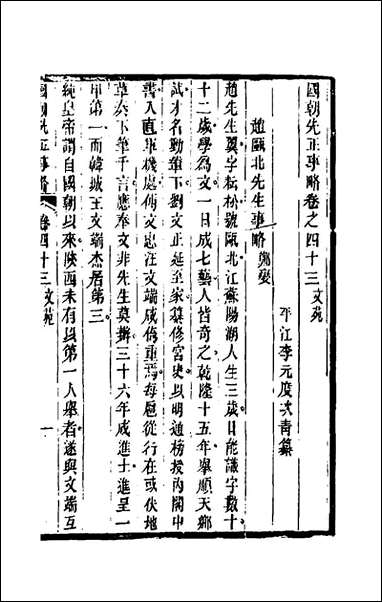 國朝先正事略卷之四十三 文苑
平江李元度次青纂
趙甌北先生事略
趙先生翼字耘松號甌北江蘇陽湖人生三歲日能識字數十
十二歲學為文一日成七藝人皆奇之乾隆十五年舉順天鄉
試才名動輦下劉文正延至家纂修宮史以明通榜授內閣中
書入直軍機處傅文忠汪文端咸倚重焉每扈從行在或伏地
草奏下筆千言應奉文非先生莫辦三十六年成進士進呈一
甲第一而韓城王文端杰居第三
純皇帝謂自國朝以來陝西未有以第一人舉者遂與文端互
國朝先正事略 卷四十三 文苑 一